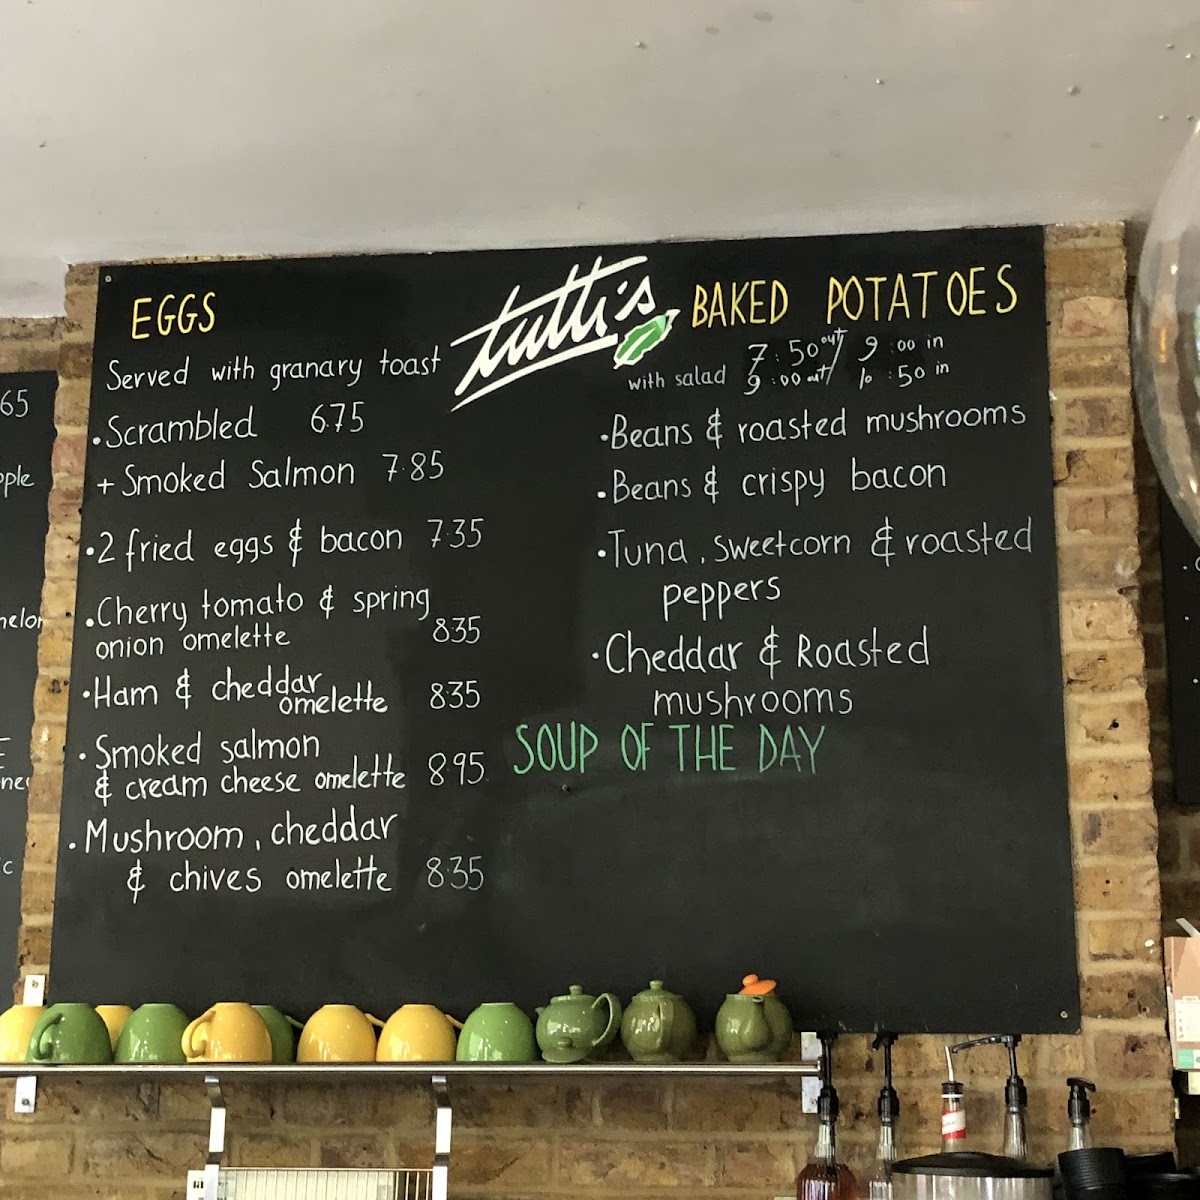 tutti's
EGGS
Served with granary toast
·Scrambled 6.75
+ Smoked Salmon 7.85
·2 fried eggs & bacon 7.35
·Cherry tomato & spring
onion omelette 8.35
·Ham & cheddar
omelette 8.35
·Smoked salmon
& cream cheese omelette 8.95
·Mushroom, cheddar
& chives omelette 8.35
BAKED POTATOES
7:50 out/ 9:00 in
with salad 9:00 out/ 10:50 in
·Beans & roasted mushrooms
·Beans & crispy bacon
·Tuna, sweetcorn & roasted
peppers
·Cheddar & Roasted
mushrooms
SOUP OF THE DAY
65